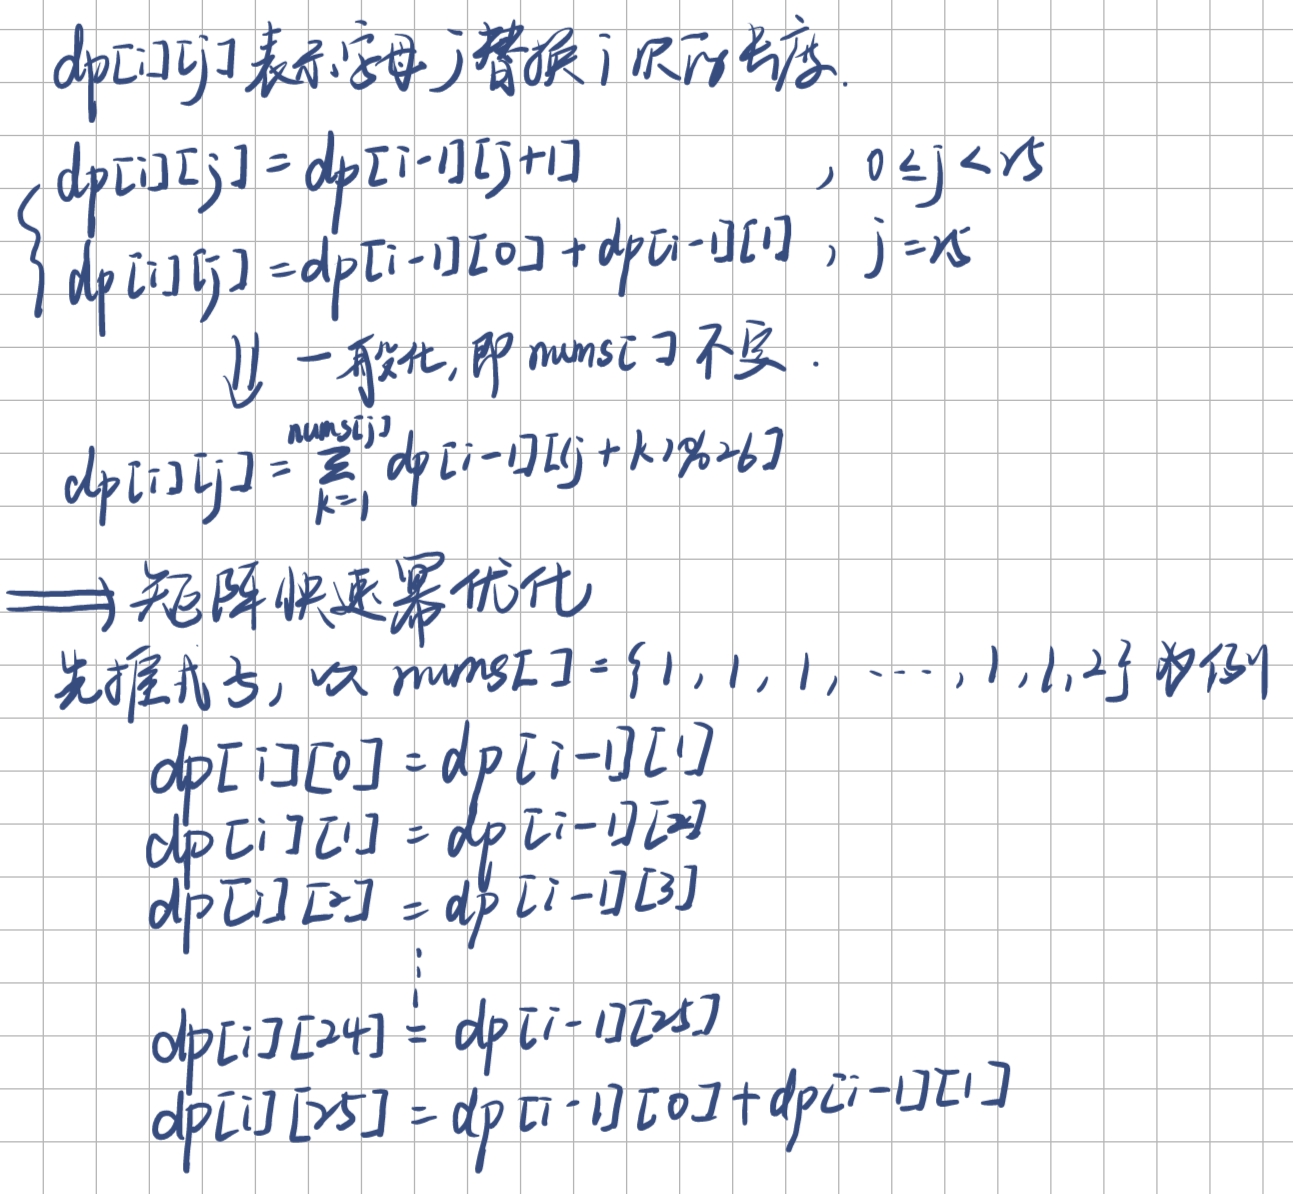 dp[i][j]表示字母j替换i次后长度.
dp[i][j] = dp[i-1][j+1] , 0≤j<25
dp[i][j] = dp[i-1][0] + dp[i-1][1] , j=25
⇓ 一般化, 即 nums[ ] 不定.
dp[i][j] = \sum_{k=1}^{nums[j]} dp[i-1][(j+k)%26]
⟹ 矩阵快速幂优化
先推式子, 以 nums[ ] = {1, 1, 1, ..., 1, 1, 2} 为例
dp[i][0] = dp[i-1][1]
dp[i][1] = dp[i-1][2]
dp[i][2] = dp[i-1][3]
⋮
dp[i][24] = dp[i-1][25]
dp[i][25] = dp[i-1][0] + dp[i-1][1]